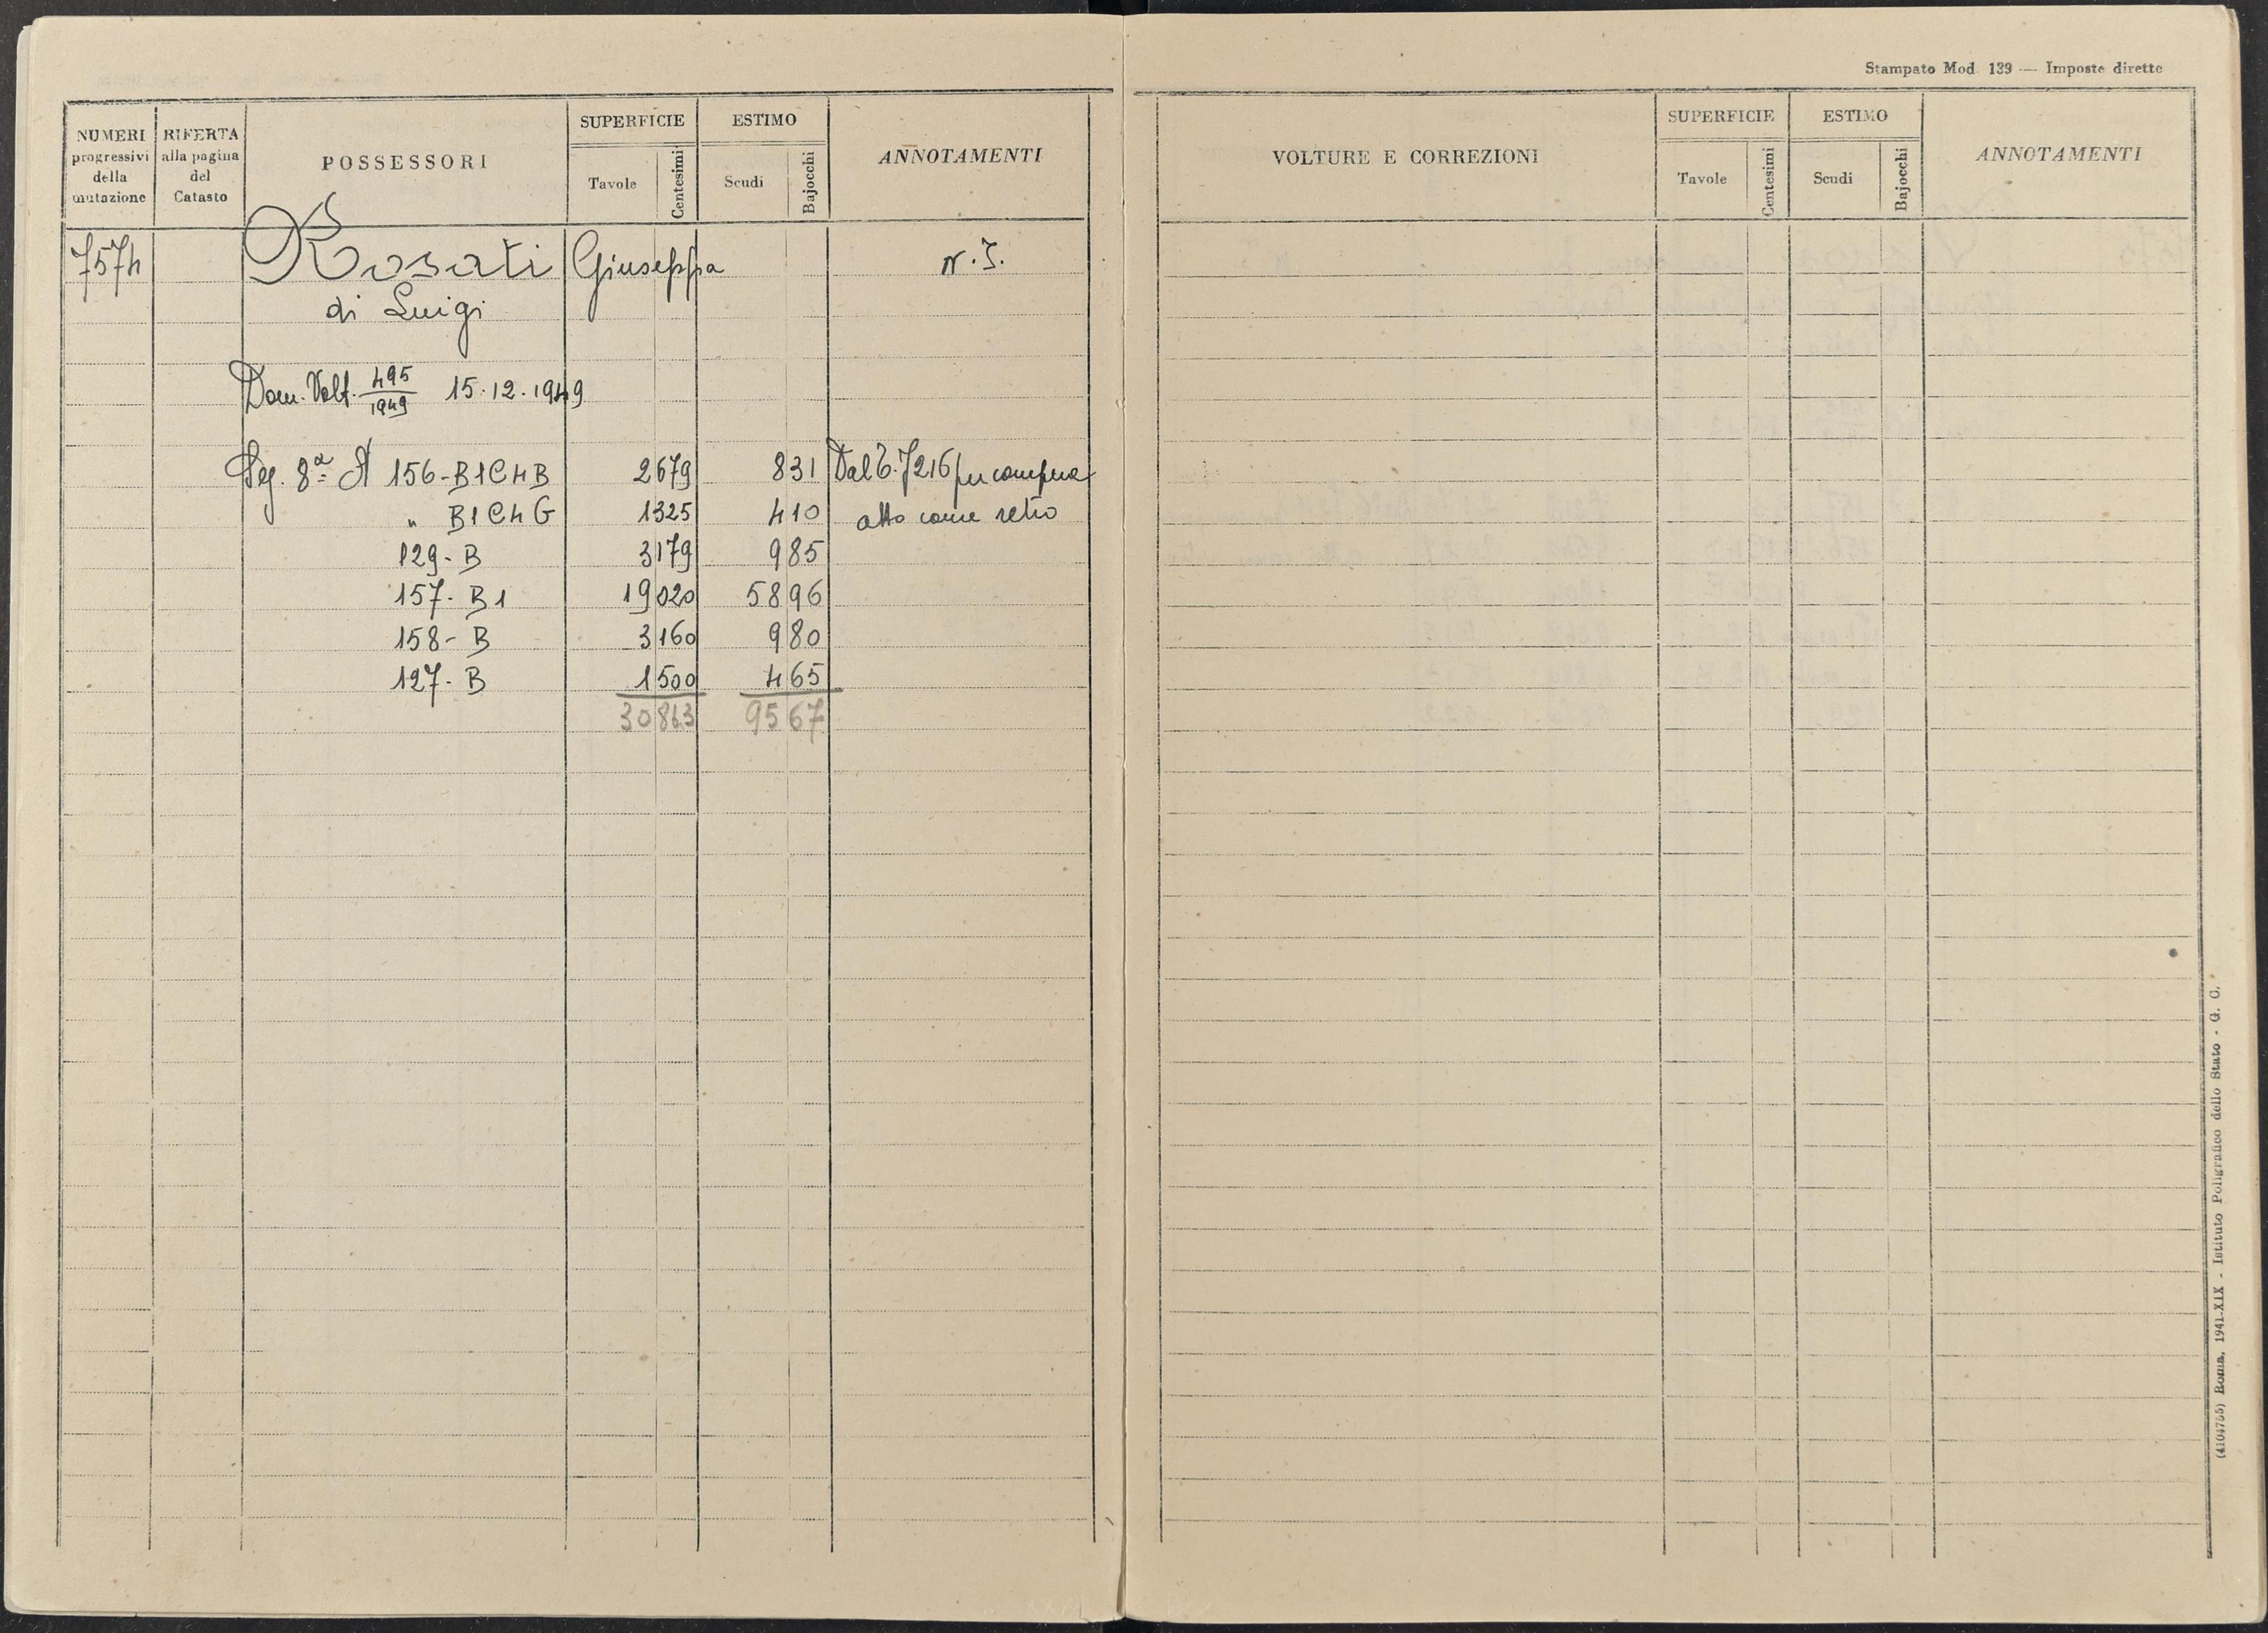 Stampato Mod. 139 — Imposte dirette
NUMERI progressivi della mutazione
RIFERTA alla pagina del Catasto
POSSESSORI
SUPERFICIE
Tavole
Centesimi
ESTIMO
Scudi
Bajocchi
ANNOTAMENTI
7574 Rosati Giuseppa N. I.
di Luigi
Dom. Volt. 495/1949 15.12.1949
Seg. 8ª A 156-B1C4B 2679 831 Dal T. 7216 per compera
" B1C4G 1325 410 atto come retro
129-B 3179 985
157-B1 19020 5896
158-B 3160 980
127-B 1500 465
30863 9567
VOLTURE E CORREZIONI
SUPERFICIE
Tavole
Centesimi
ESTIMO
Scudi
Bajocchi
ANNOTAMENTI
(4104755) Roma, 1941-XIX - Istituto Poligrafico dello Stato - G. C.